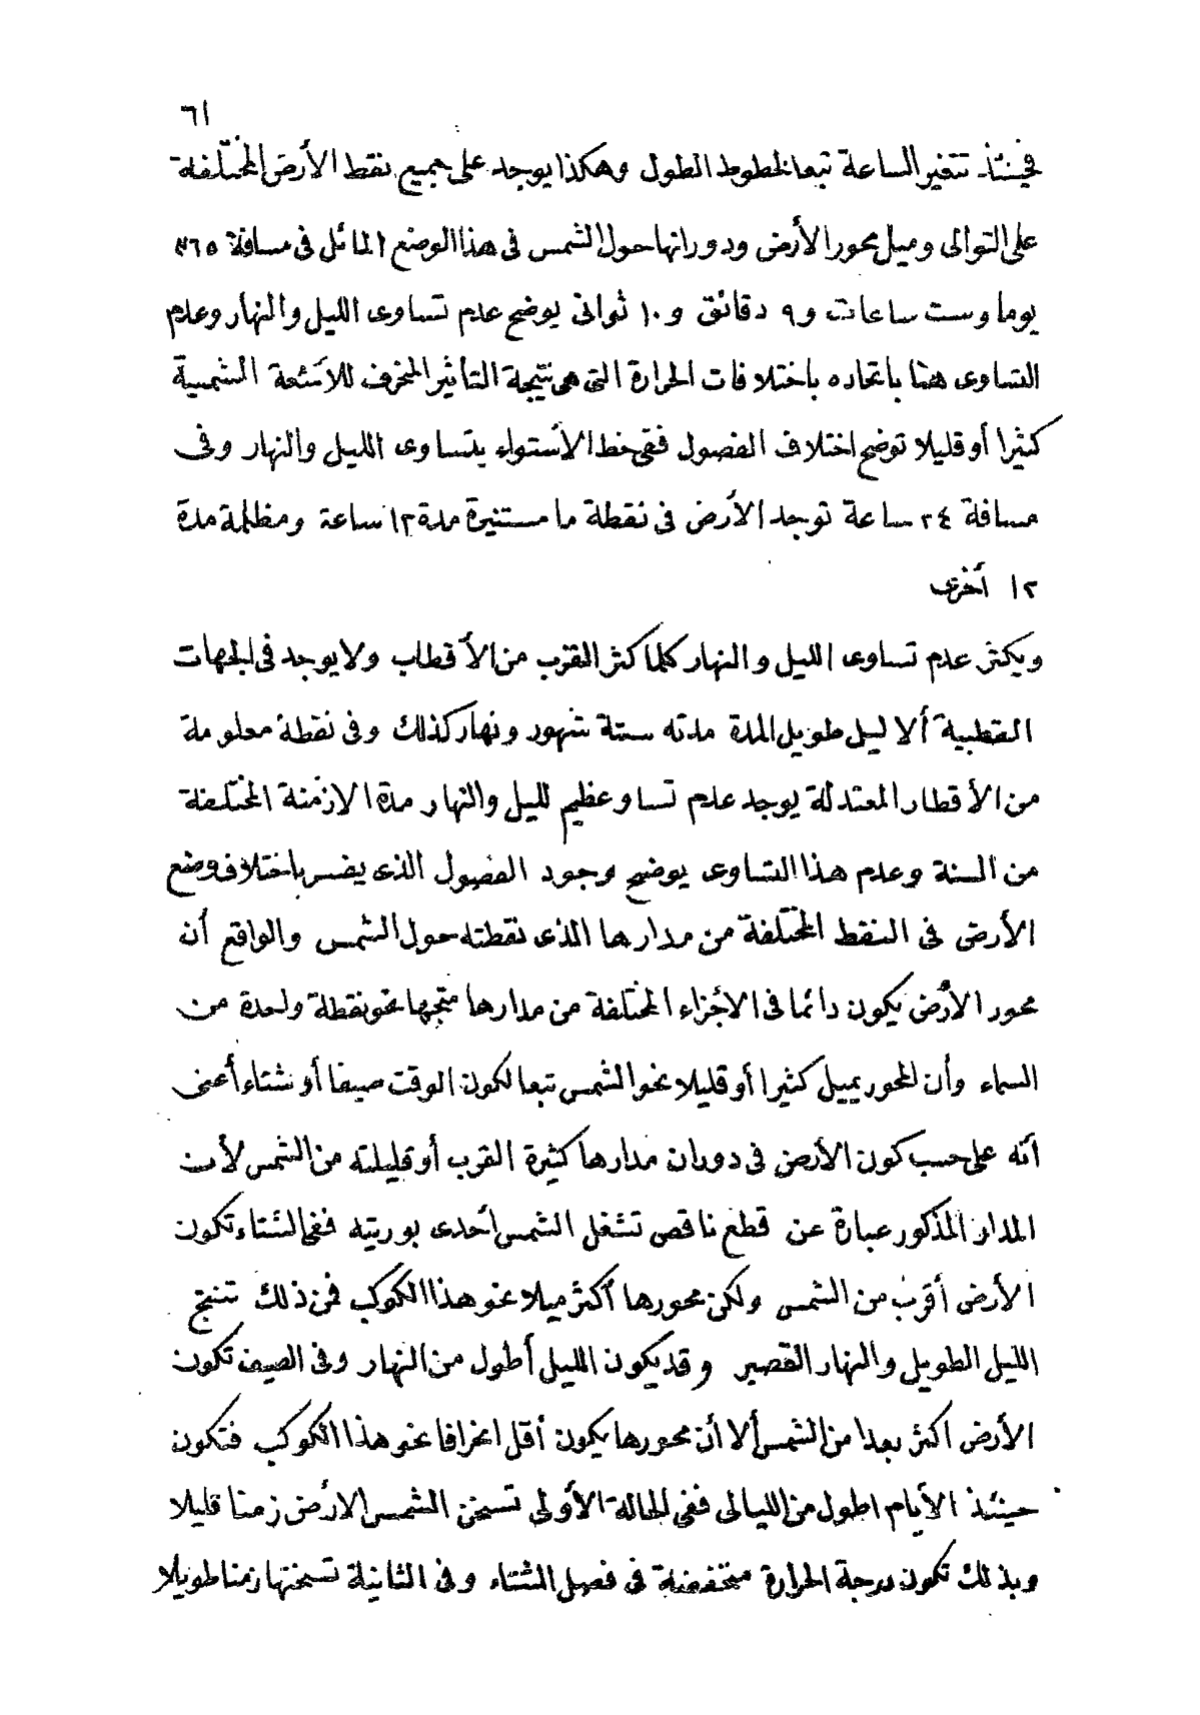 ٦١
فحينئذ تتغير الساعة تبعا لخطوط الطول وهكذا يوجد على جميع نقط الأرض المختلفة
على التوالى وميل محور الأرض ودورانها حول الشمس فى هذا الوضع المائل فى مسافة ٣٦٥
يوما وست ساعات و٩ دقائق و١٠ ثوانى يوضح عدم تساوى الليل والنهار وعدم
التساوى هنا باتحاده باختلافات الحرارة التى هى نتيجة التأثير المنحرف للأشعة الشمسية
كثيرا أو قليلا توضح اختلاف الفصول ففى خط الأستواء يتساوى الليل والنهار وفى
مسافة ٢٤ ساعة توجد الأرض فى نقطة ما مستنيرة مدة ١٢ ساعة ومظلمة مدة
١٢ أخرى
ويكثر عدم تساوى الليل والنهار كلما كثر القرب من الأقطاب ولا يوجد فى الجهات
القطبية ألا ليل طويل المدة مدته ستة شهور ونهار كذلك وفى نقطة معلومة
من الأقطار المعتدلة يوجد عدم تساو عظيم لليل والنهار مدة الازمنة المختلفة
من السنة وعدم هذا التساوى يوضح وجود الفصول الذى يفسر باختلاف وضع
الأرض فى النقط المختلفة من مدارها الذى نقطته حول الشمس والواقع أن
محور الأرض يكون دائما فى الأجزاء المختلفة من مدارها متجها نحو نقطة واحدة من
السماء وأن المحور يميل كثيرا أو قليلا نحو الشمس تبعا لكون الوقت صيفا أو شتاء أعنى
أنه على حسب كون الأرض فى دوران مدارها كثيرة القرب أو قليلته من الشمس لأن
المدار المذكور عبارة عن قطع ناقص تشغل الشمس أحدى بورتيه ففى الشتاء تكون
الأرض أقرب من الشمس ولكن محورها أكثر ميلا نحو هذا الكوكب فمن ذلك تنتج
الليل الطويل والنهار القصير وقد يكون الليل أطول من النهار وفى الصيف تكون
الأرض اكثر بعدا من الشمس ألا أن محورها يكون أقل انحرافا نحو هذا الكوكب فتكون
حينئذ الأيام اطول من الليالى ففى الحالة الأولى تسخن الشمس الارض زمنا قليلا
وبذلك تكون درجة الحرارة منخفضة فى فصل الشتاء وفى الثانية تسخنها زمنا طويلا